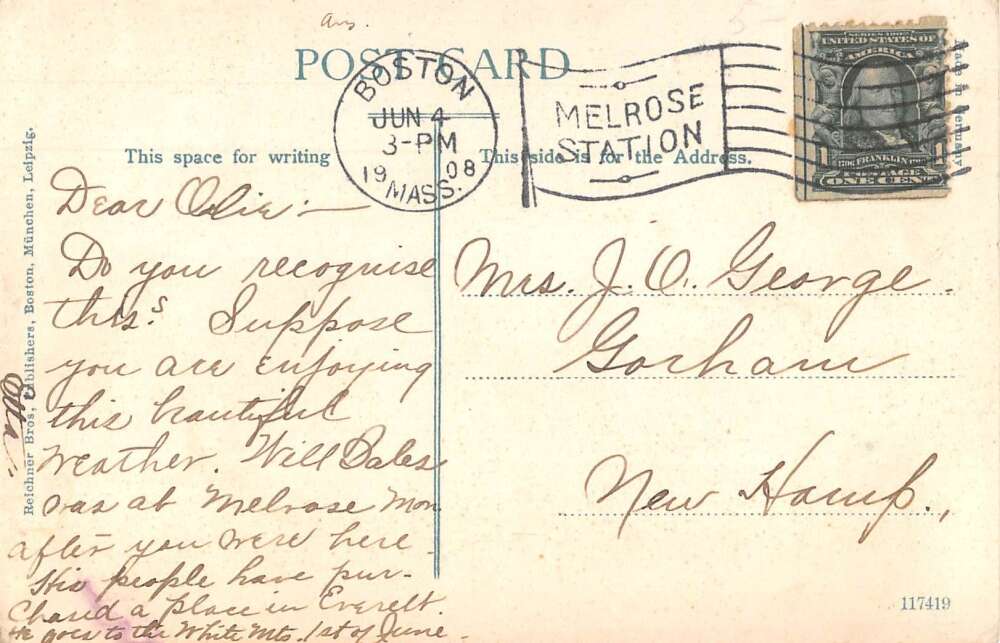 Ans.
POST CARD
BOSTON
JUN 4
3-PM
1908
MASS.
MELROSE
STATION
SERIES 1902
UNITED STATES OF
AMERICA
1706 FRANKLIN 1790
1 POSTAGE 1
ONE CENT
Made in Germany
This space for writing
This side is for the Address.
Dear Olie:-
Do you recognise
this? Suppose
you are enjoying
this beautiful
weather. Will Bales
was at Melrose Mon
after you were here.
His people have pur-
chased a place in Everett.
He goes to the White Mts. 1st of June.
Mrs. J. O. George.
Gorham
New Hamp.,
Reichner Bros, Publishers, Boston, München, Leipzig.
117419